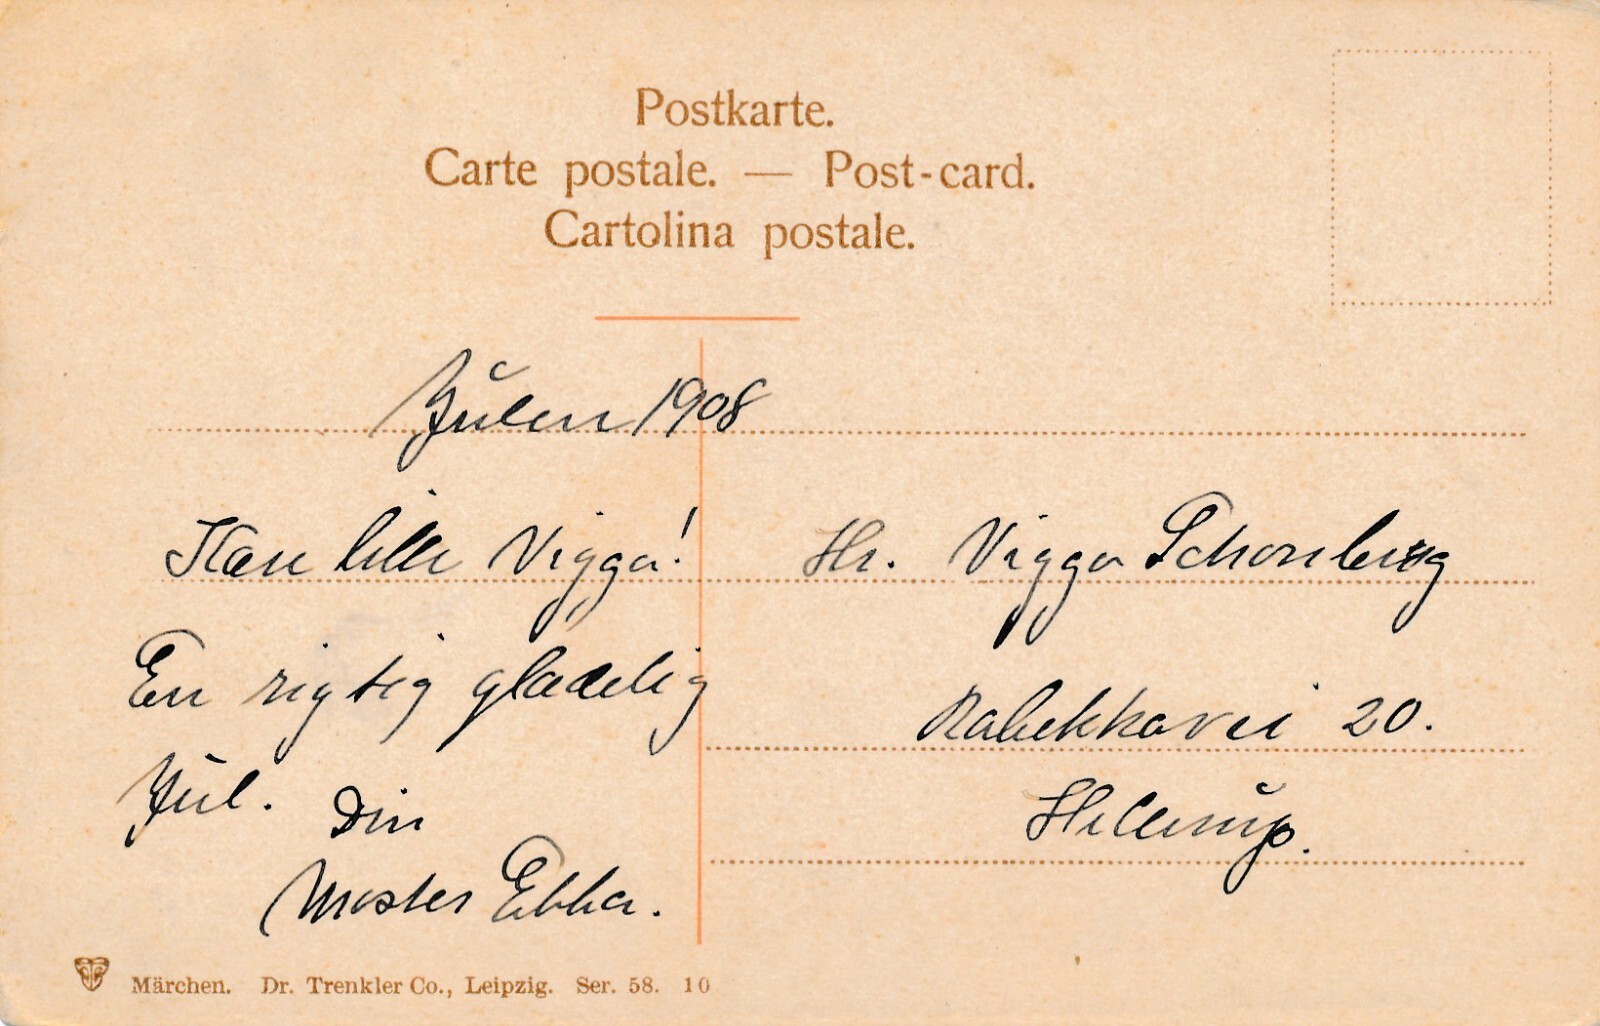 Postkarte.
Carte postale. — Post-card.
Cartolina postale.
Julen 1908
Kære lille Viggo!
En rigtig glædelig
Jul. Din
Moster Ebba.
Hr. Viggo Schønberg
Rabekkavei 20.
Hellerup.
Märchen. Dr. Trenkler Co., Leipzig. Ser. 58. 10